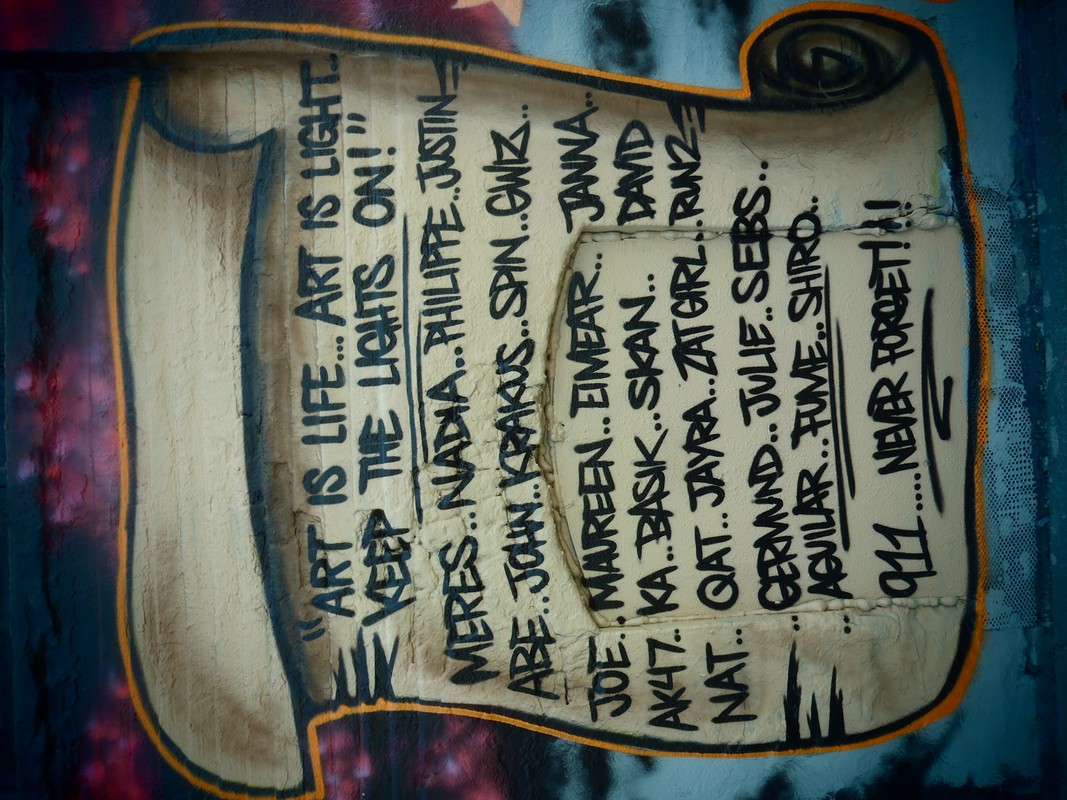 "ART IS LIFE... ART IS LIGHT..
KEEP THE LIGHTS ON!"
MERES..NADIA..PHILIPPE..JUSTIN
ABE..JOHN..KRAKUS..SPIN..GWIZ...
JOE..MAUREEN..EIMEAR.. JANNA..
AK47..KA..BASIK..SKAN.. DAVID
NAT..QAT..JAYRA..ZAT GIRL...RUN2
GERMAND..JULIE..SEEBS..
AGUILAR..FUME..SHIRO..
911.....NEVER FORGET!!!